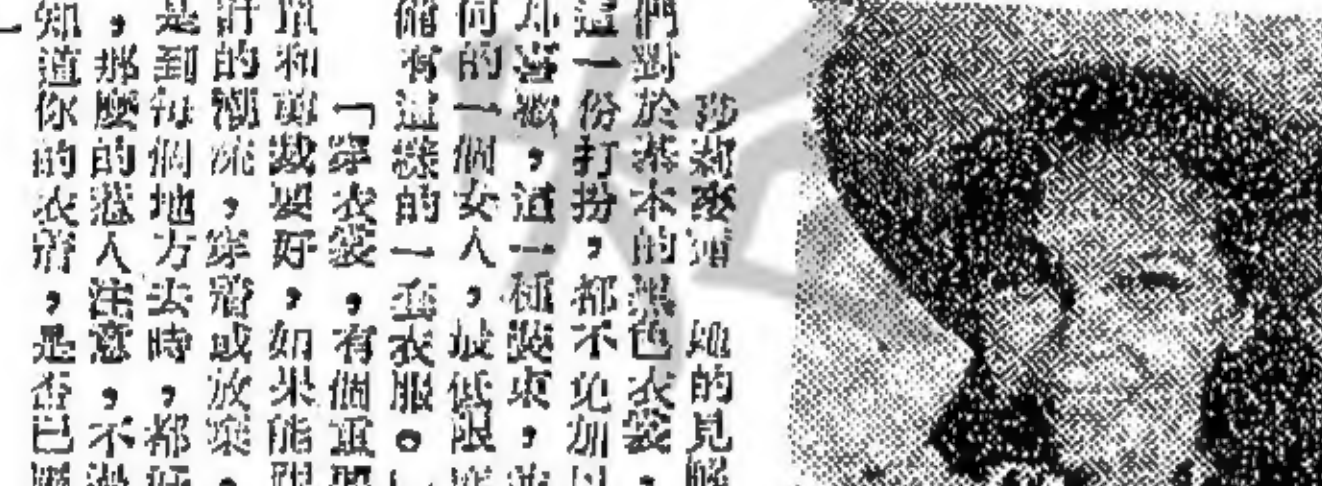 莎莉麥 她的見解
們對於基本的黑色衣裳,
這一份打扮,都不免加以
喜歡,這一種裝束,
何的一個女人,最低限
備有這樣的一套衣服。
「穿衣裳,有個重要
單和剪裁要好,如果能
的潮流,穿着或放棄,
是到每個地方去時,都
,那麼的惹人注意,不過
知道你的衣着,是否已